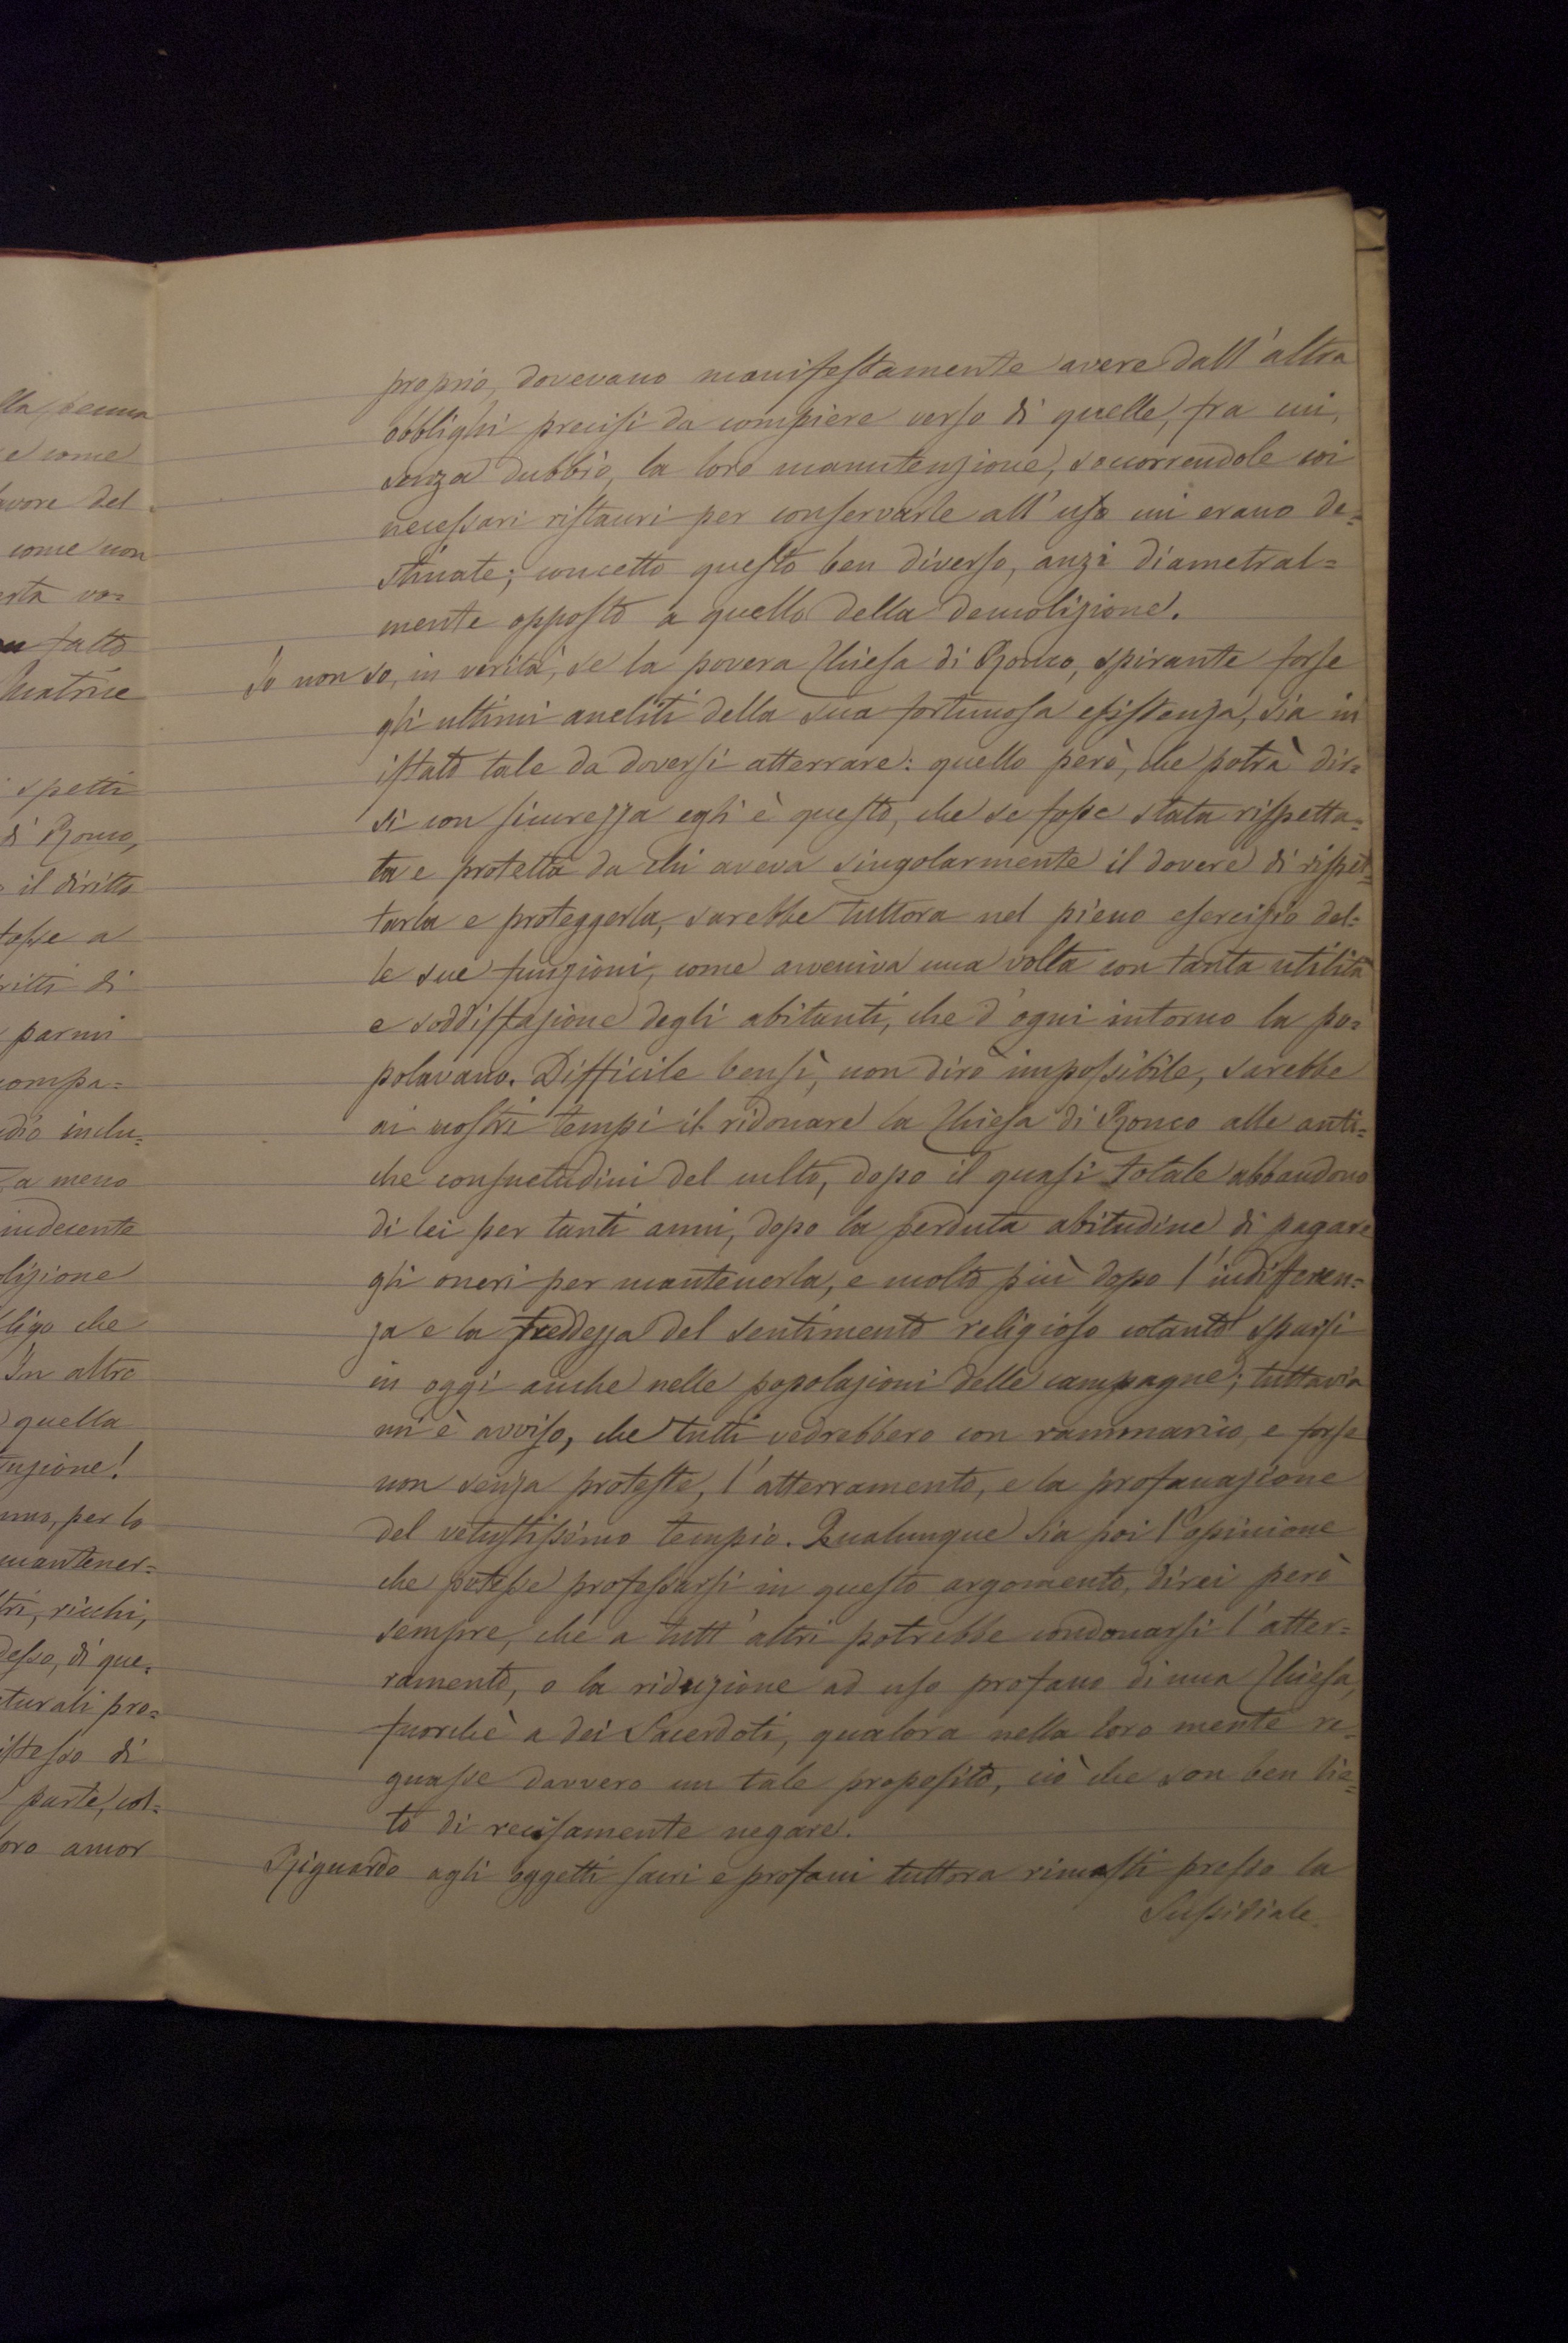 lla penna
e come
avore del-
come non
erta vo=
fatto
Matrice
spetti
di Ronco,
il diritto
tosse a
ritti di
parmi
compa=
dio inclu=
a meno
indecente
olizione
ligo che
In altro
quella
nzione!
nno, per lo
mantener=
tri, ricchi,
desso, di que=
turali pro=
istesso di
parte, col=
oro amor
proprio, dovevano manifestamente avere dall'altra
obblighi precisi da compiere verso di quelle, fra cui,
senza dubbio, la loro manutenzione, soccorrendole coi
necessari ristauri per conservarle all'uso cui erano de=
stinate; concetto questo ben diverso, anzi diametral=
mente opposto a quello della demolizione.
Io non so, in verità, se la povera Chiesa di Ronco, spirante forse
gli ultimi aneliti della sua fortunosa esistenza, sia in
istato tale da doversi atterrare: quello però, che potrà dir=
si con sicurezza egli è questo, che se fosse stata rispetta=
ta e protetta da chi aveva singolarmente il dovere di rispet=
tarla e proteggerla, sarebbe tuttora nel pieno esercizio del=
le sue funzioni, come avveniva una volta con tanta utilità
e soddisfazione degli abitanti, che d'ogni intorno la po=
polavano. Difficile bensì, non dirò impossibile, sarebbe
ai nostri tempi il ridonare la Chiesa di Ronco alle anti=
che consuetudini del culto, dopo il quasi totale abbandono
di lei per tanti anni, dopo la perduta abitudine di pagare
gli oneri per mantenerla, e molto più dopo l'indifferen=
za e la freddezza del sentimento religioso cotanto sparsi
in oggi anche nelle popolazioni delle campagne; tuttavia
mi è avviso, che tutti vedrebbero con rammarico, e forse
non senza proteste, l'atterramento, e la profanazione
del vetustissimo tempio. Qualunque sia poi l'opinione
che potesse professarsi in questo argomento, direi però
sempre, che a tutt'altri potrebbe condonarsi l'atter=
ramento, o la riduzione ad uso profano di una Chiesa,
fuorchè a dei Sacerdoti, qualora nella loro mente re=
gnasse davvero un tale proposito, ciò che son ben lie=
to di recisamente negare.
Riguardo agli oggetti sacri e profani tuttora rimasti presso la
Sussidiale